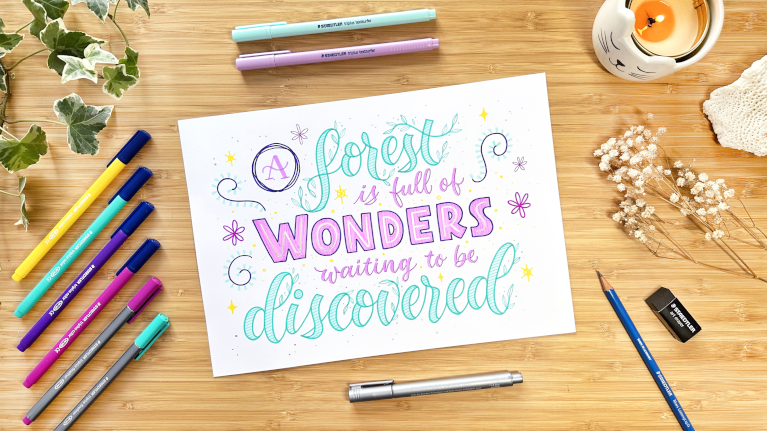 STAEDTLER triplus textsurfer
STAEDTLER triplus textsurfer
A forest
is full of
WONDERS
waiting to be
discovered
STAEDTLER